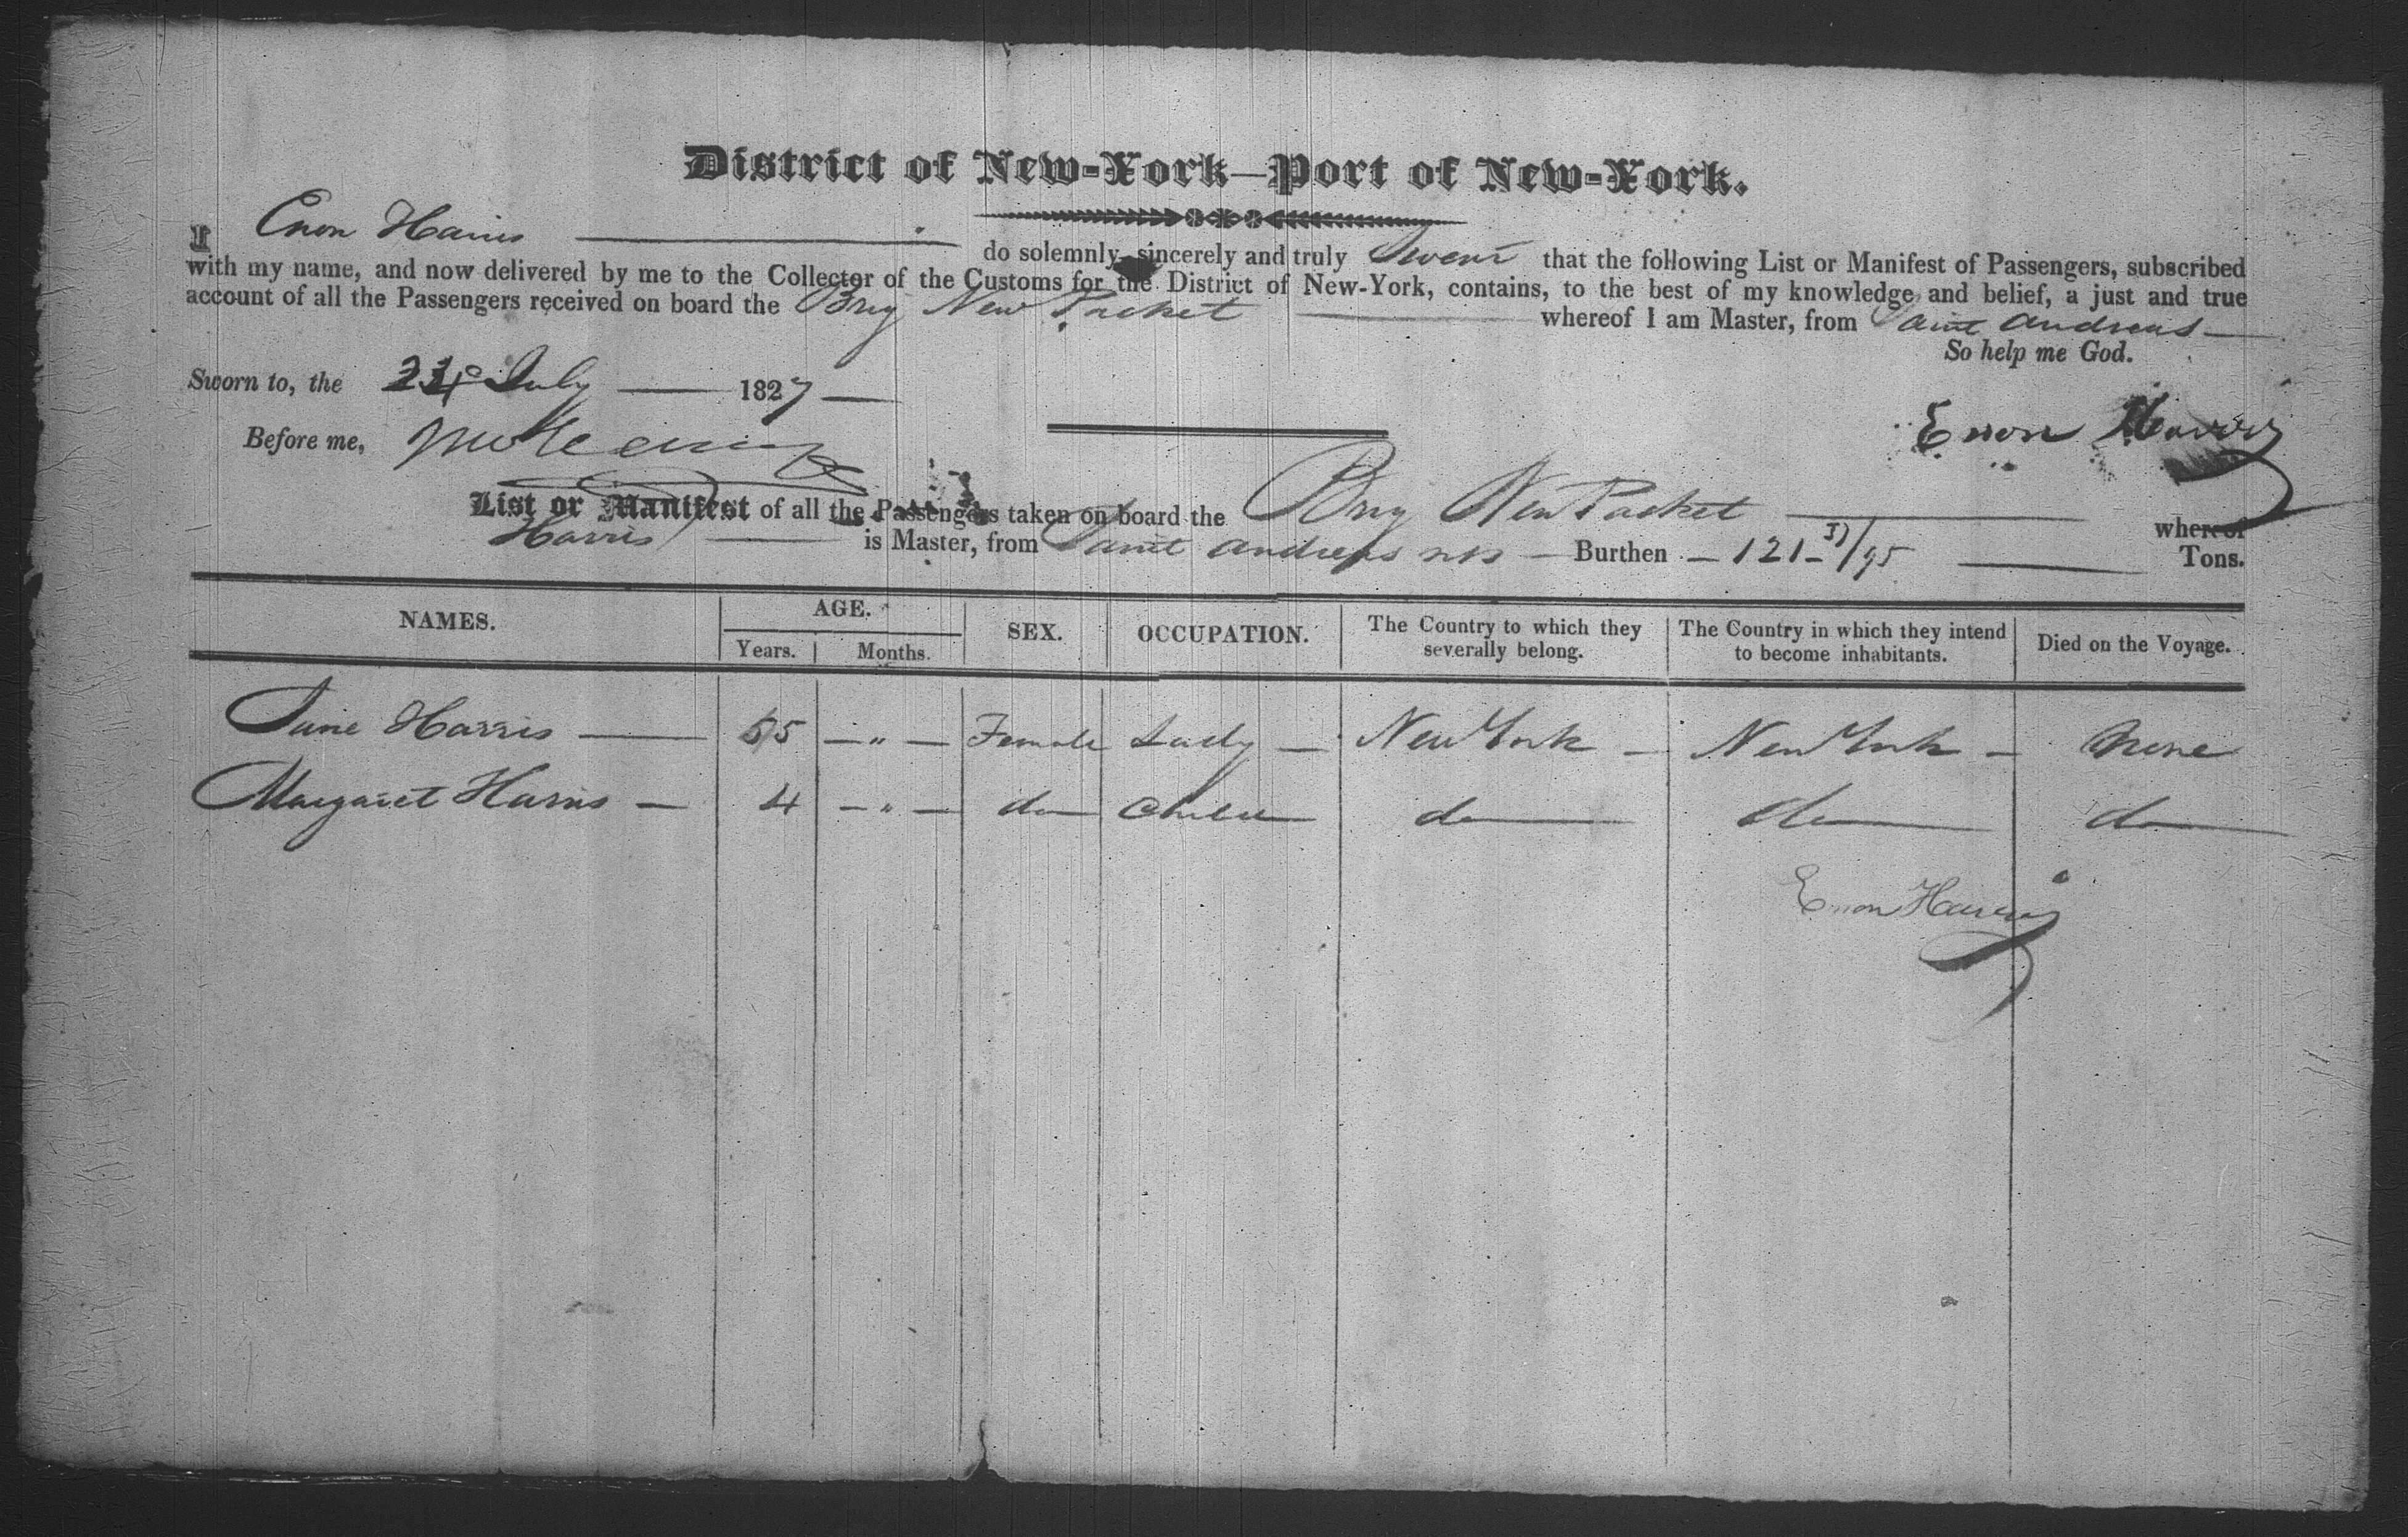 District of New-York—Port of New-York.
I Enon Harris do solemnly, sincerely and truly Swear that the following List or Manifest of Passengers, subscribed
with my name, and now delivered by me to the Collector of the Customs for the District of New-York, contains, to the best of my knowledge and belief, a just and true
account of all the Passengers received on board the Brig New Packet whereof I am Master, from Saint Andrews
So help me God.
Sworn to, the July 1827
Before me,
Enon Harris
List or Manifest of all the Passengers taken on board the Brig New Packet whereof
Harris is Master, from Saint Andrews Burthen 121 /95 Tons.
NAMES. AGE. SEX. OCCUPATION. The Country to which they severally belong. The Country in which they intend to become inhabitants. Died on the Voyage.
Years. Months.
Jane Harris — 55 — " — Female Lady — New York — New York — None
Margaret Harris — 4 — " — do Child do do do
Enon Harris